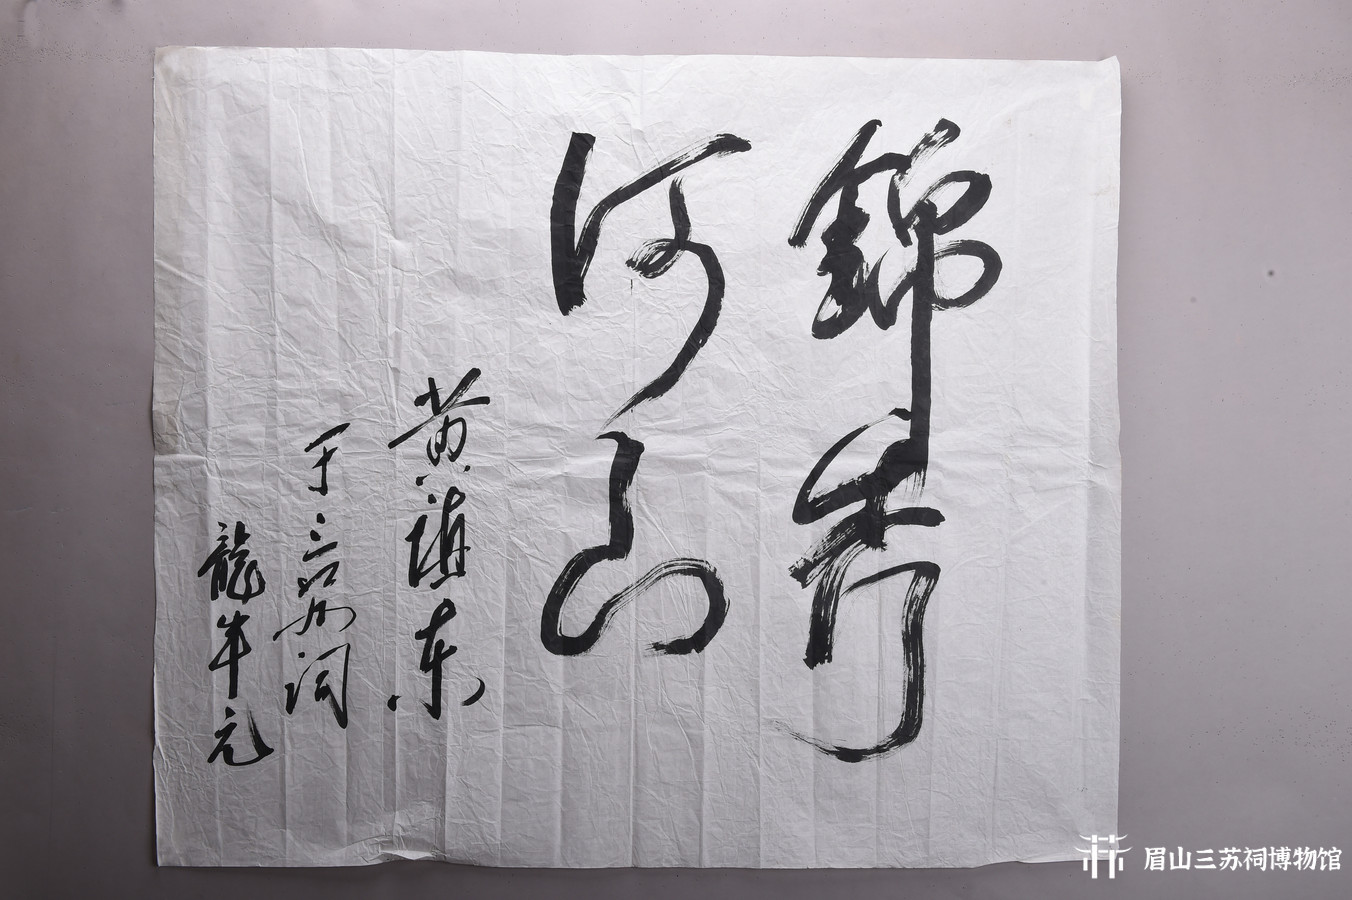 錦秀
河山
黄鎮东
于三苏祠
龍年元
眉山三苏祠博物馆